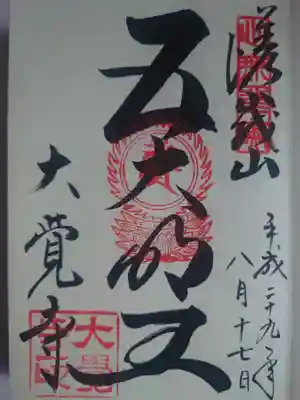 嵯峨山
平成二十九年
八月十七日
五大明王
大覺寺
大覺